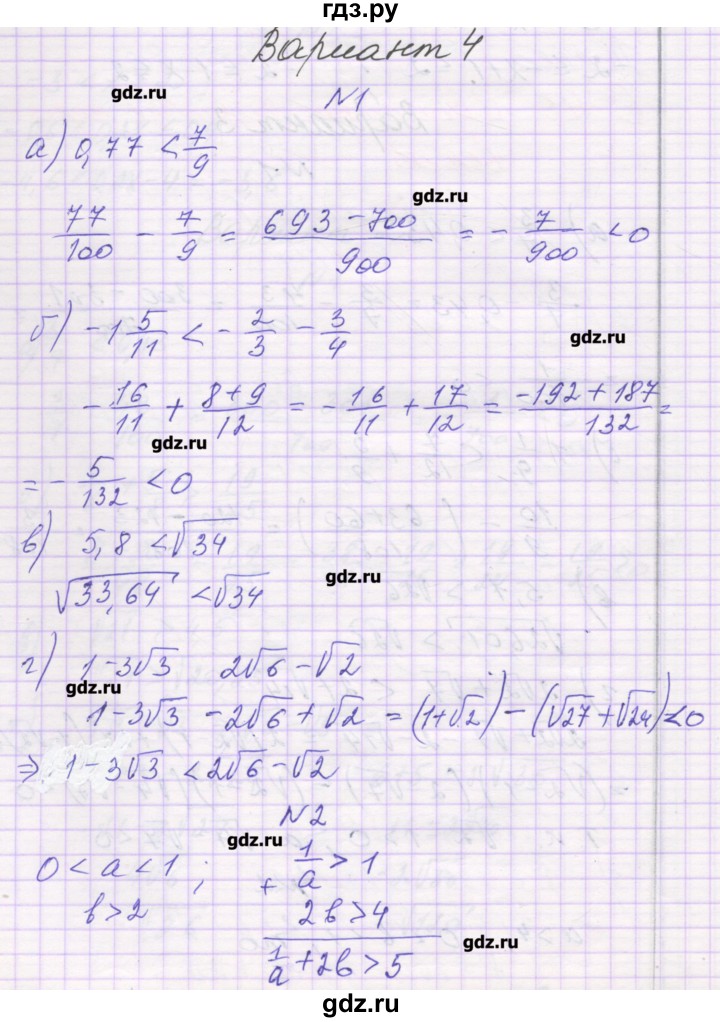 гдз.ру
Вариант 4
gdz.ru
N1
а) 0,77 < 7/9
gdz.ru
77/100 - 7/9 = (693 - 700)/900 = - 7/900 < 0
б) -1 5/11 < - 2/3 - 3/4
gdz.ru
- 16/11 + (8+9)/12 = - 16/11 + 17/12 = (-192 + 187)/132 =
gdz.ru
= - 5/132 < 0
в) 5,8 < √34
gdz.ru
√33,64 < √34
г) 1-3√3 2√6 - √2
gdz.ru
1-3√3 - 2√6 + √2 = (1+√2) - (√27 + √24) < 0
⇒ 1-3√3 < 2√6 - √2
N2
gdz.ru
0 < a < 1 ; 1/a > 1
+
b > 2 2b > 4
gdz.ru
1/a + 2b > 5
gdz.ru